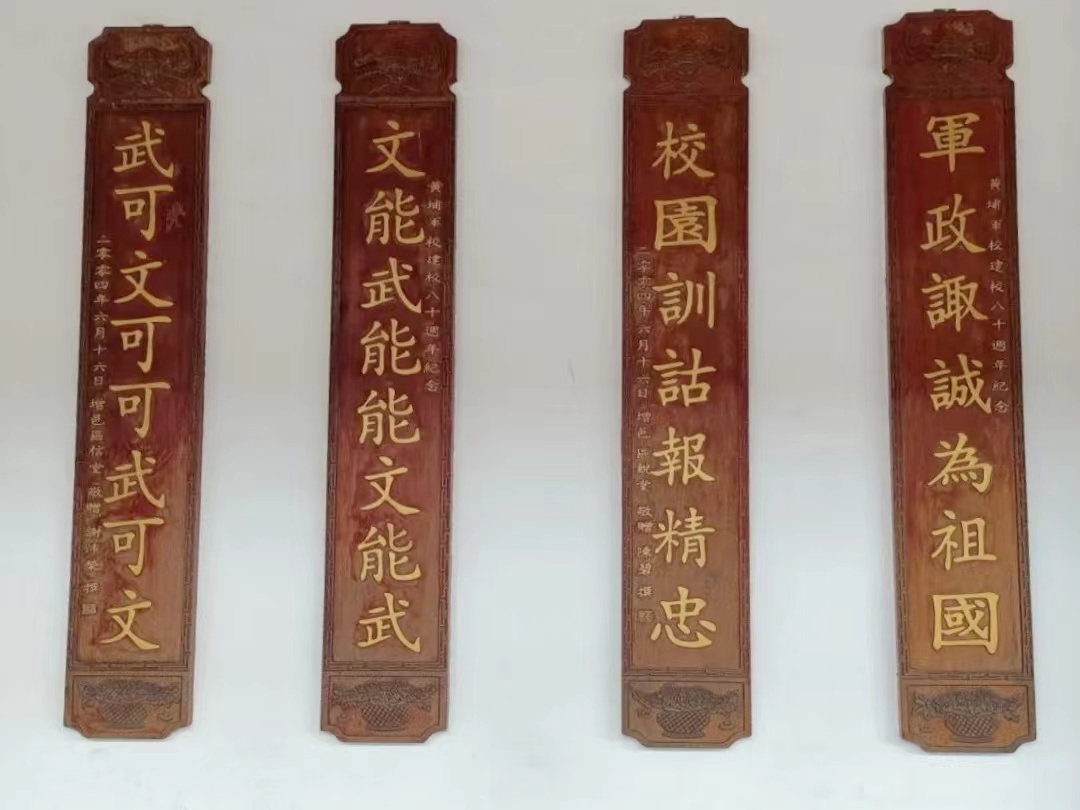 軍政諏誠為祖國
黃埔軍校建校八十週年紀念
校園訓詁報精忠
二零零四年六月十六日 增邑區銳堂 敬贈 陳碧 撰
文能武能能文能武
黃埔軍校建校八十週年紀念
武可文可可武可文
二零零四年六月十六日 增邑區信堂 敬贈 謝沛榮 撰